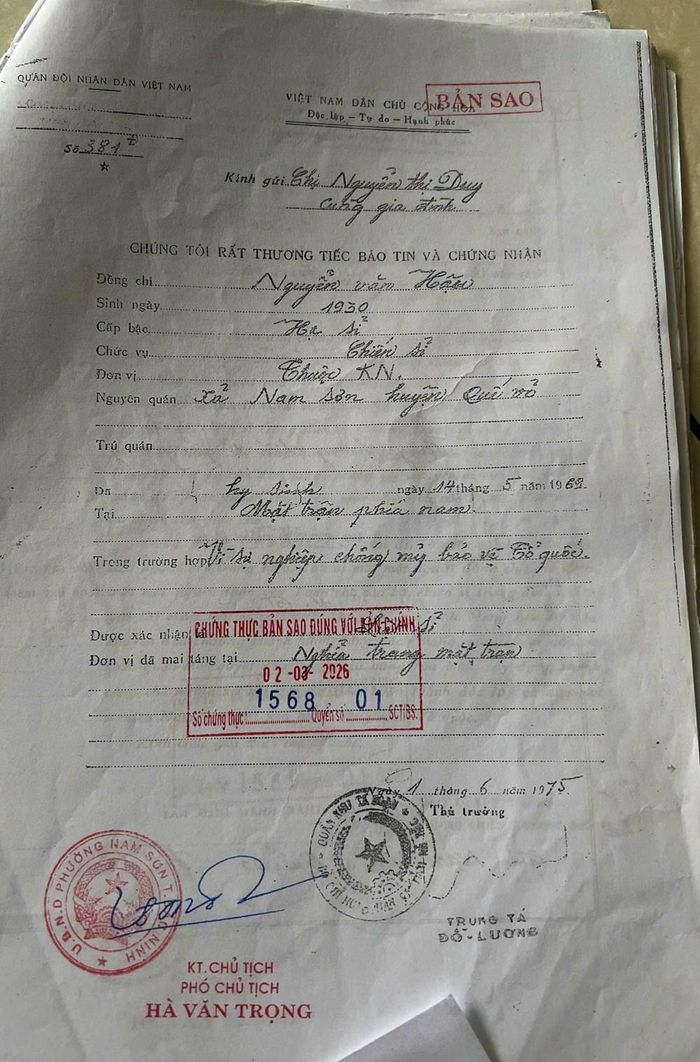 QUÂN ĐỘI NHÂN DÂN VIỆT NAM
Số 381
VIỆT NAM DÂN CHỦ CỘNG HÒA
BẢN SAO
Độc lập - Tự do - Hạnh phúc
Kính gửi Chị Nguyễn thị Duy
cùng gia đình
CHÚNG TÔI RẤT THƯƠNG TIẾC BÁO TIN VÀ CHỨNG NHẬN
Đồng chí Nguyễn văn Hậu
Sinh ngày 1930
Cấp bậc Hạ sĩ
Chức vụ Chiến sĩ
Đơn vị Thuộc KN.
Nguyên quán xã Nam sơn huyện Quế võ
Trú quán
Đã hy sinh ngày 14 tháng 5 năm 1969
Tại Mặt trận phía nam.
Trong trường hợp Vì sự nghiệp chống mỹ bảo vệ Tổ quốc.
Được xác nhận là sĩ
Đơn vị đã mai táng tại Nghĩa trang mặt trận
CHỨNG THỰC BẢN SAO ĐÚNG VỚI BẢN CHÍNH
02-03-2026
1568 01
Số chứng thực: Quyển số SCT/BS
Ngày 21 tháng 6 năm 1975
Thủ trưởng
TRUNG TÁ
ĐỖ-LƯƠNG
U.B.N.D PHƯỜNG NAM SƠN T. BẮC NINH
KT.CHỦ TỊCH
PHÓ CHỦ TỊCH
HÀ VĂN TRỌNG